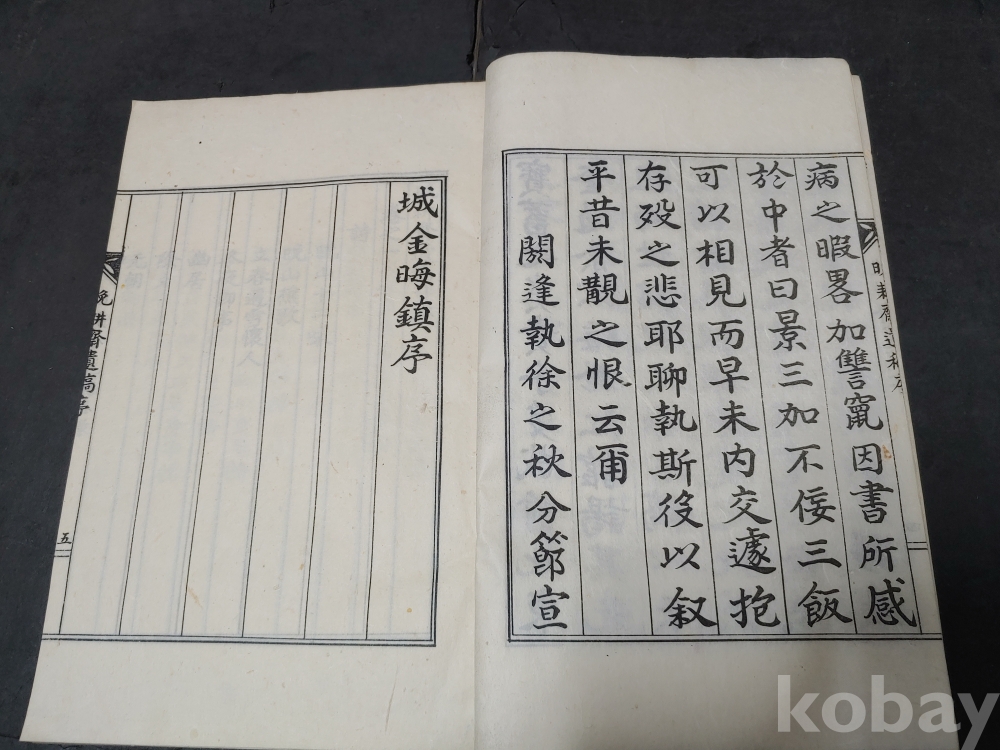 病之暇畧加讐竄因書所感
於中者曰景三加不佞三飯
可以相見而早未内交遽抱
存歿之悲耶聊執斯役以叙
平昔未覯之恨云甭
閼逢執徐之秋分節宣
城金晦鎮序
晩耕齋遺稿序
五
kobay